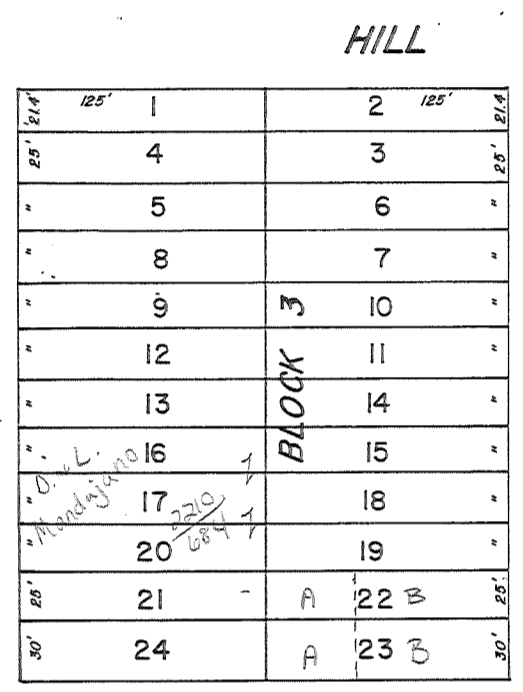 HILL
21.4' 125' 1 2 125' 21.4
25' 4 3 25'
" 5 6 "
" 8 7 "
" 9 10 "
" 12 11 "
" 13 14 "
" 16 15 "
" 17 18 "
" 20 19 "
25' 21 - A 22 B 25'
30' 24 A 23 B 30'
BLOCK 3
D. & L.
Mondajano
2210
684